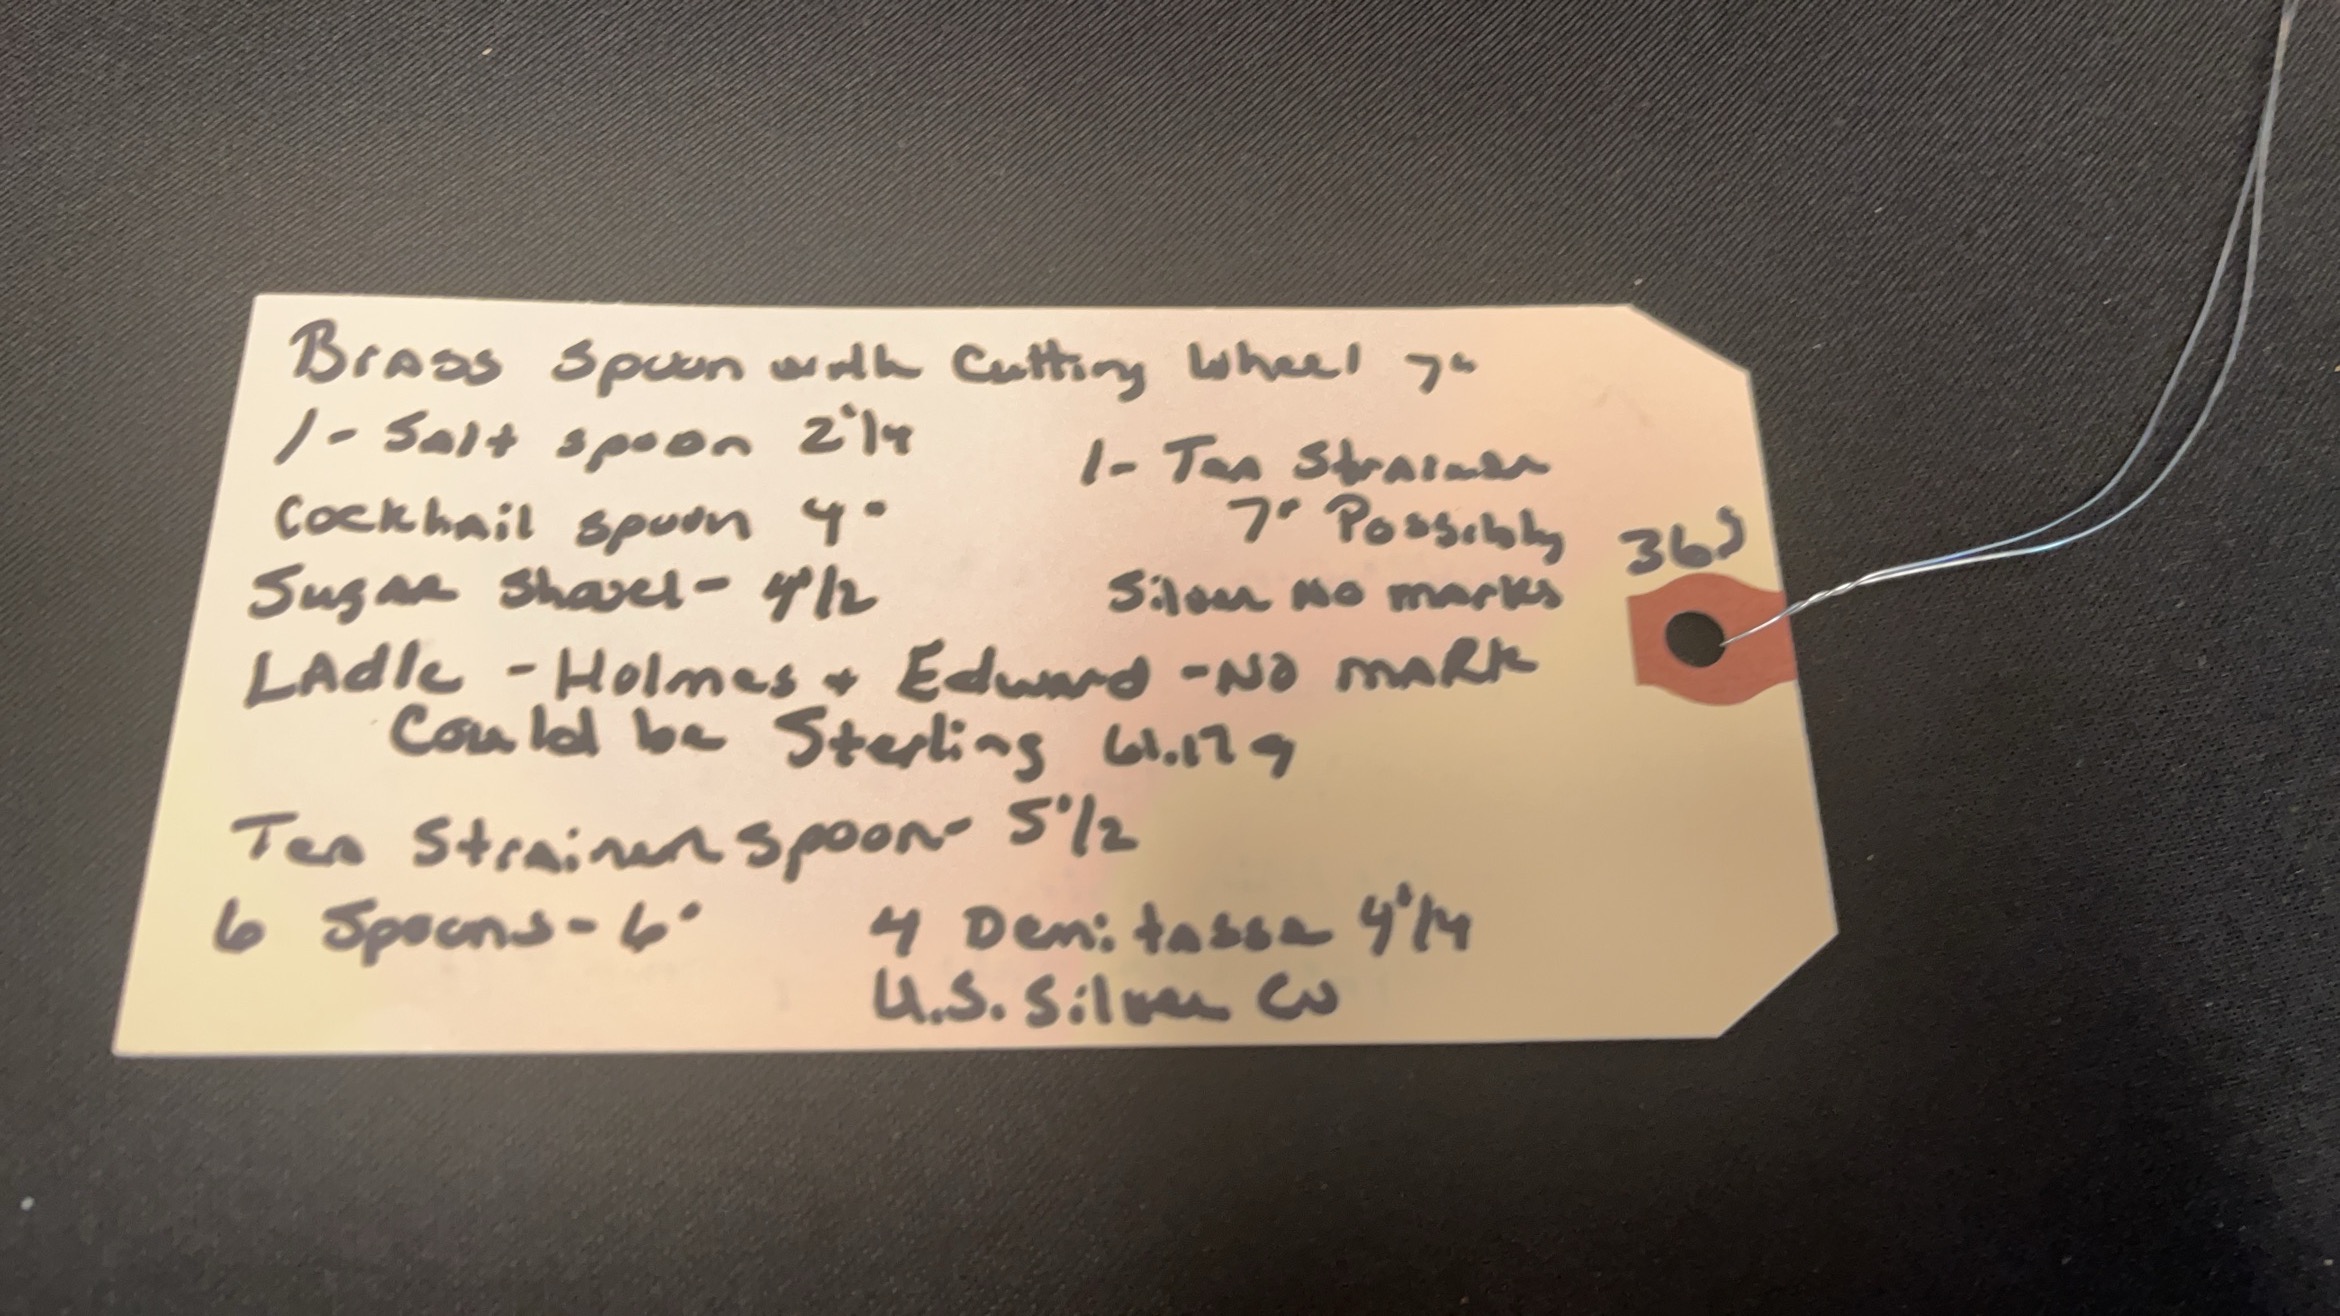 Brass Spoon with Cutting Wheel 7"
1- Salt spoon 2"1/4
Cockhail spoon 4"
Sugar Shovel - 4"1/2
1- Tea Strainer
7" Possibly
Silver No marks
LAdle - Holmes + Edward - NO MARK
Could be Sterling 61.17g
Tea Strainer spoon - 5"1/2
6 Spoons - 6"
4 Demitasse 4"1/4
U.S. Silver Co